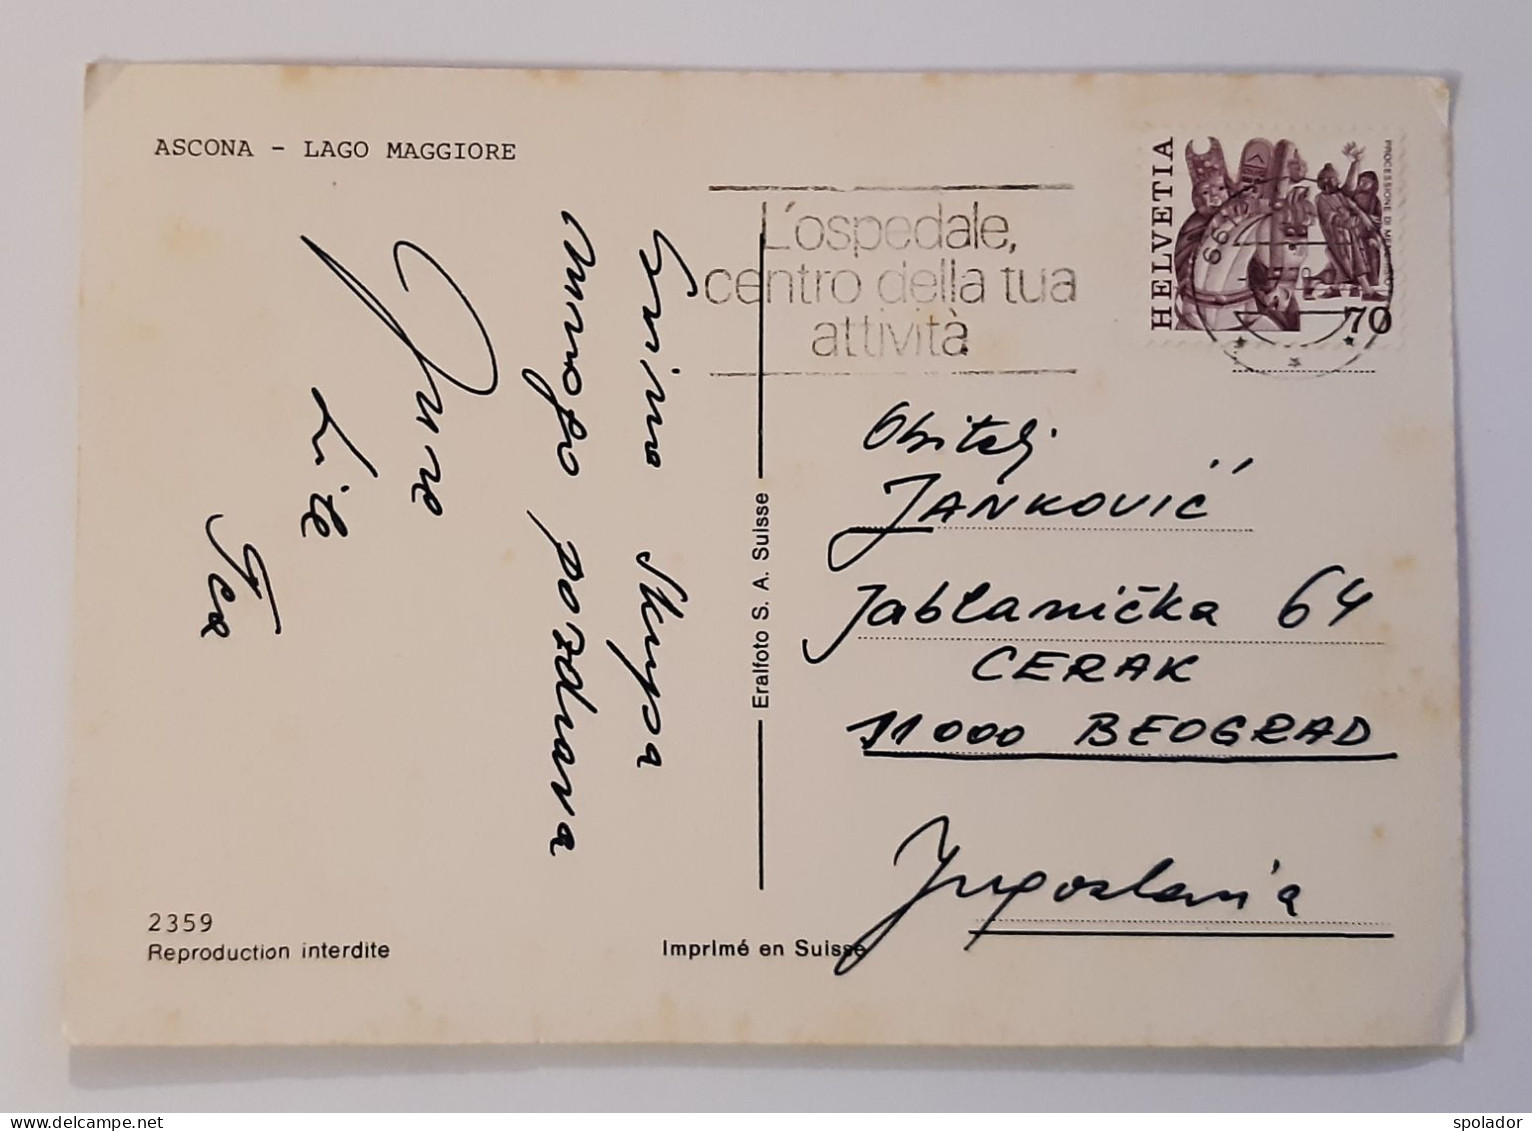 ASCONA - LAGO MAGGIORE
L'ospedale,
centro della tua
attività
HELVETIA
PROCESSIONE DI
70
Svima Skupa
mnogo pozdrava
Jure
Lile
Tea
Obitelj
JANKOVIĆ
Jablanička 64
CERAK
11000 BEOGRAD
Jugoslavia
Eralfoto S. A. Suisse
2359
Reproduction interdite
Imprimé en Suisse
delcampe.net
spolador